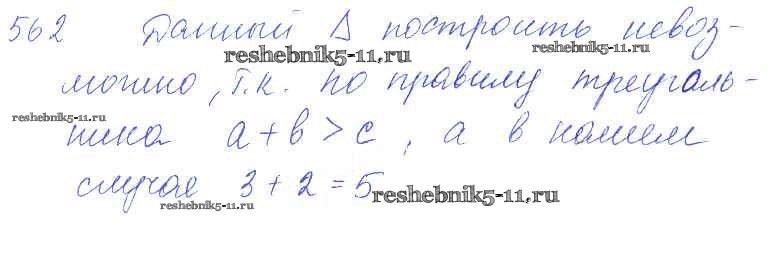 562 Данный Δ построить невоз-
reshebnik5-11.ru
reshebnik5-11.ru
можно, т.к. по правилу треуголь-
reshebnik5-11.ru
ника a + b > c, а в нашем
случае 3 + 2 = 5
reshebnik5-11.ru
reshebnik5-11.ru